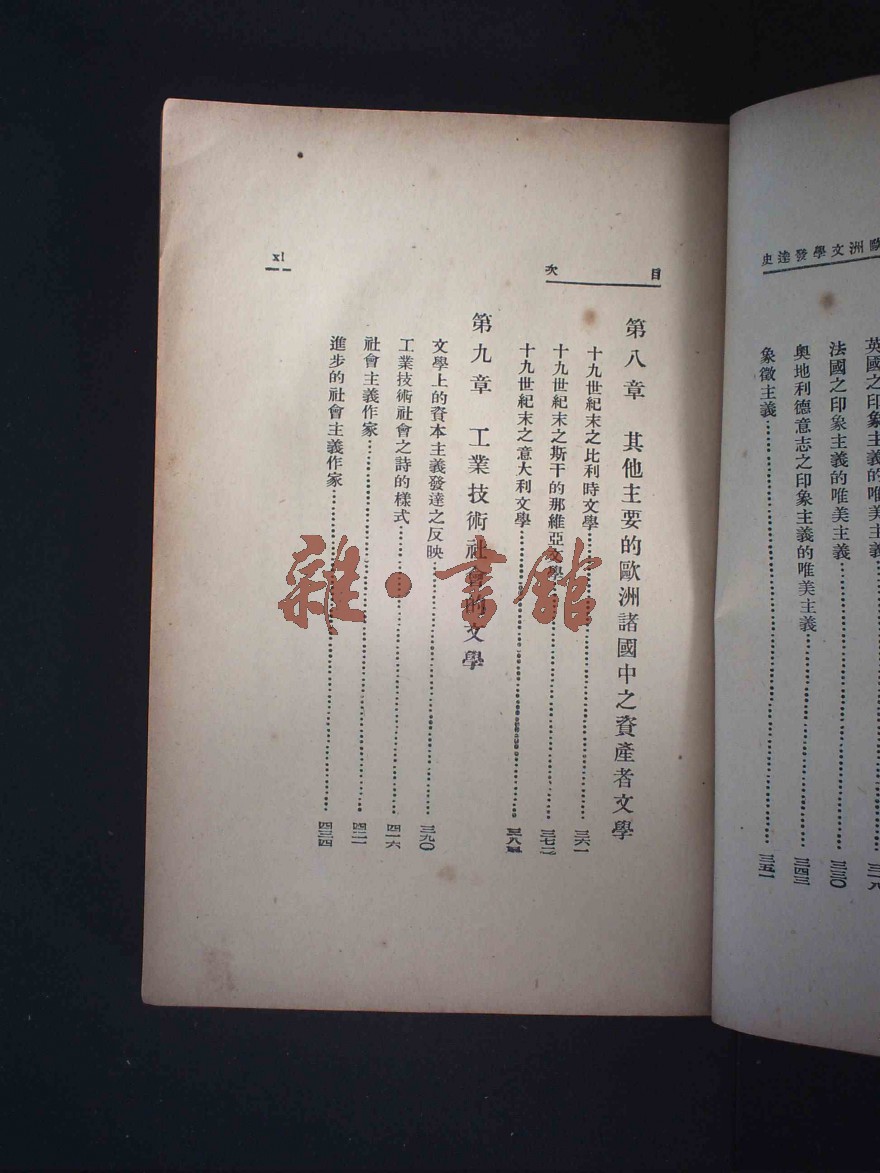 歐洲文學發達史
英國之印象主義的唯美主義
法國之印象主義的唯美主義……三三〇
奧地利德意志之印象主義的唯美主義……三四三
象徵主義……三五一
目次
第八章 其他主要的歐洲諸國中之資產者文學
十九世紀末之比利時文學……三六一
十九世紀末之斯干的那維亞文學……三七二
十九世紀末之意大利文學……三八
第九章 工業技術社會的文學
文學上的資本主義發達之反映……三九〇
工業技術社會之詩的樣式……四一六
社會主義作家……四二一
進步的社會主義作家……四三四
xl
雜·書館